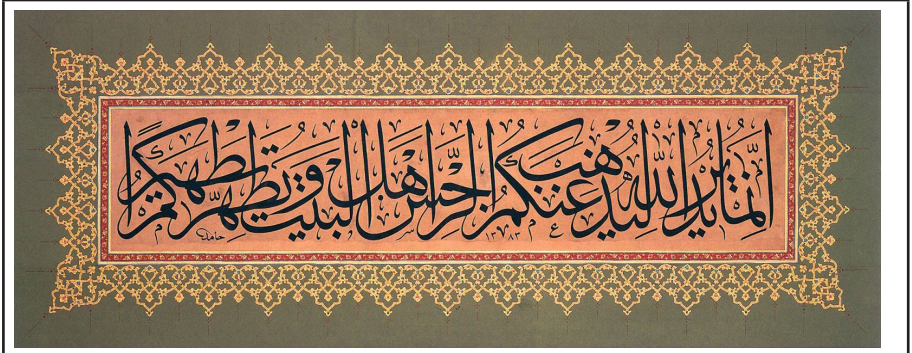 إِنَّمَا يُرِيدُ اللّٰهُ لِيُذْهِبَ عَنْكُمُ الرِّجْسَ اَهْلَ الْبَيْتِ وَيُطَهِّرَكُمْ تَطْهِيرًا
حامد
١٣٨٣